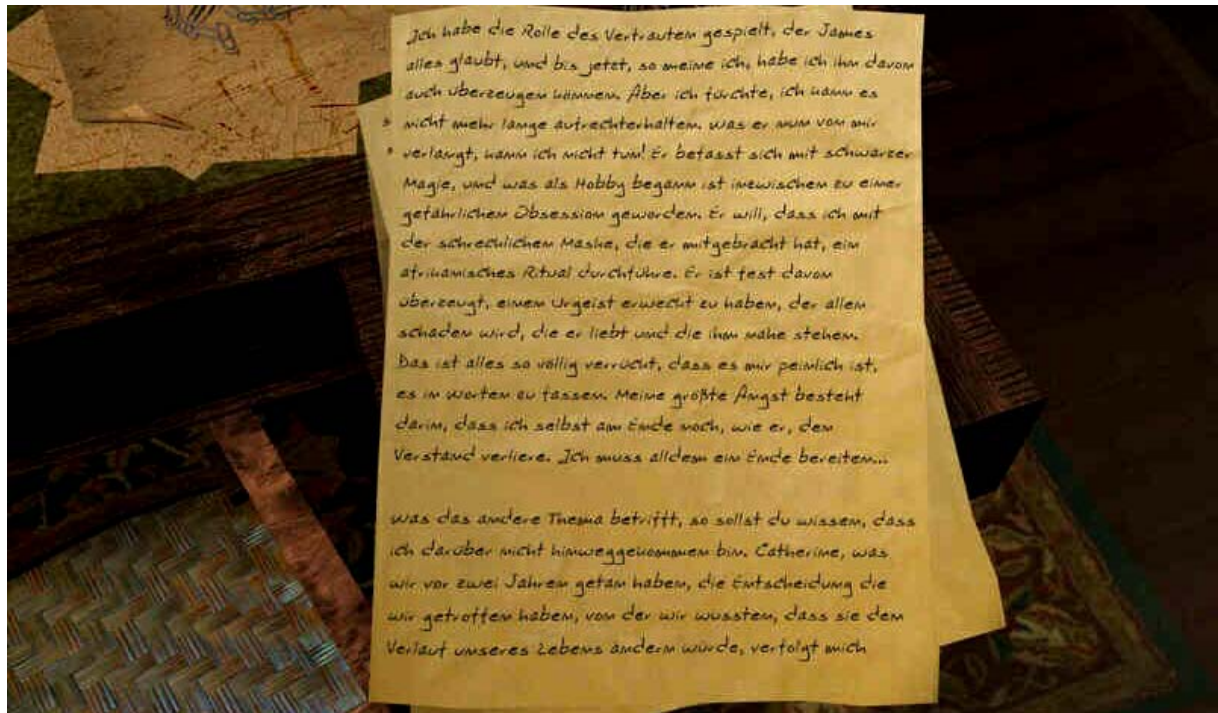 Ich habe die Rolle des Vertrauten gespielt, der James
alles glaubt, und bis jetzt, so meine ich, habe ich ihn davon
auch überzeugen können. Aber ich fürchte, ich kann es
nicht mehr lange aufrechterhalten. Was er nun von mir
verlangt, kann ich nicht tun! Er befasst sich mit schwarzer
Magie, und was als Hobby begann ist inzwischen zu einer
gefährlichen Obsession geworden. Er will, dass ich mit
der schrecklichen Maske, die er mitgebracht hat, ein
afrikanisches Ritual durchführe. Er ist fest davon
überzeugt, einen Urgeist erweckt zu haben, der allen
schaden wird, die er liebt und die ihm nahe stehen.
Das ist alles so völlig verrückt, dass es mir peinlich ist,
es in Worten zu fassen. Meine größte Angst besteht
darin, dass ich selbst am Ende noch, wie er, den
Verstand verliere. Ich muss alldem ein Ende bereiten...
Was das andere Thema betrifft, so sollst du wissen, dass
ich darüber nicht hinweggekommen bin. Catherine, was
wir vor zwei Jahren getan haben, die Entscheidung die
wir getroffen haben, von der wir wussten, dass sie den
Verlauf unseres Lebens ändern würde, verfolgt mich